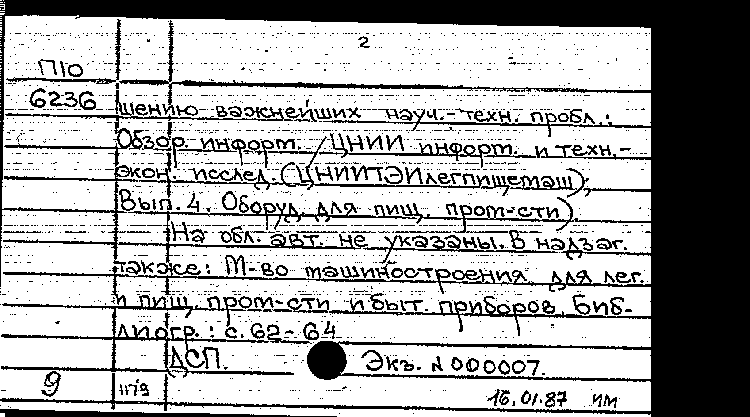 2
П10
6236
шению важнейших науч.-техн. пробл.:
Обзор. информ. / ЦНИИ информ. и техн.-
экон. исслед. (ЦНИИТЭИлегпищемаш);
Вып. 4. Оборуд. для пищ. пром-сти).
На обл. авт. не указаны. В надзаг.
также: М-во машиностроения для лег.
и пищ. пром-сти и быт. приборов. Биб-
лиогр.: с. 62-64
ДСП. Экз. N 000007.
9 1179 16.01.87 ИМ